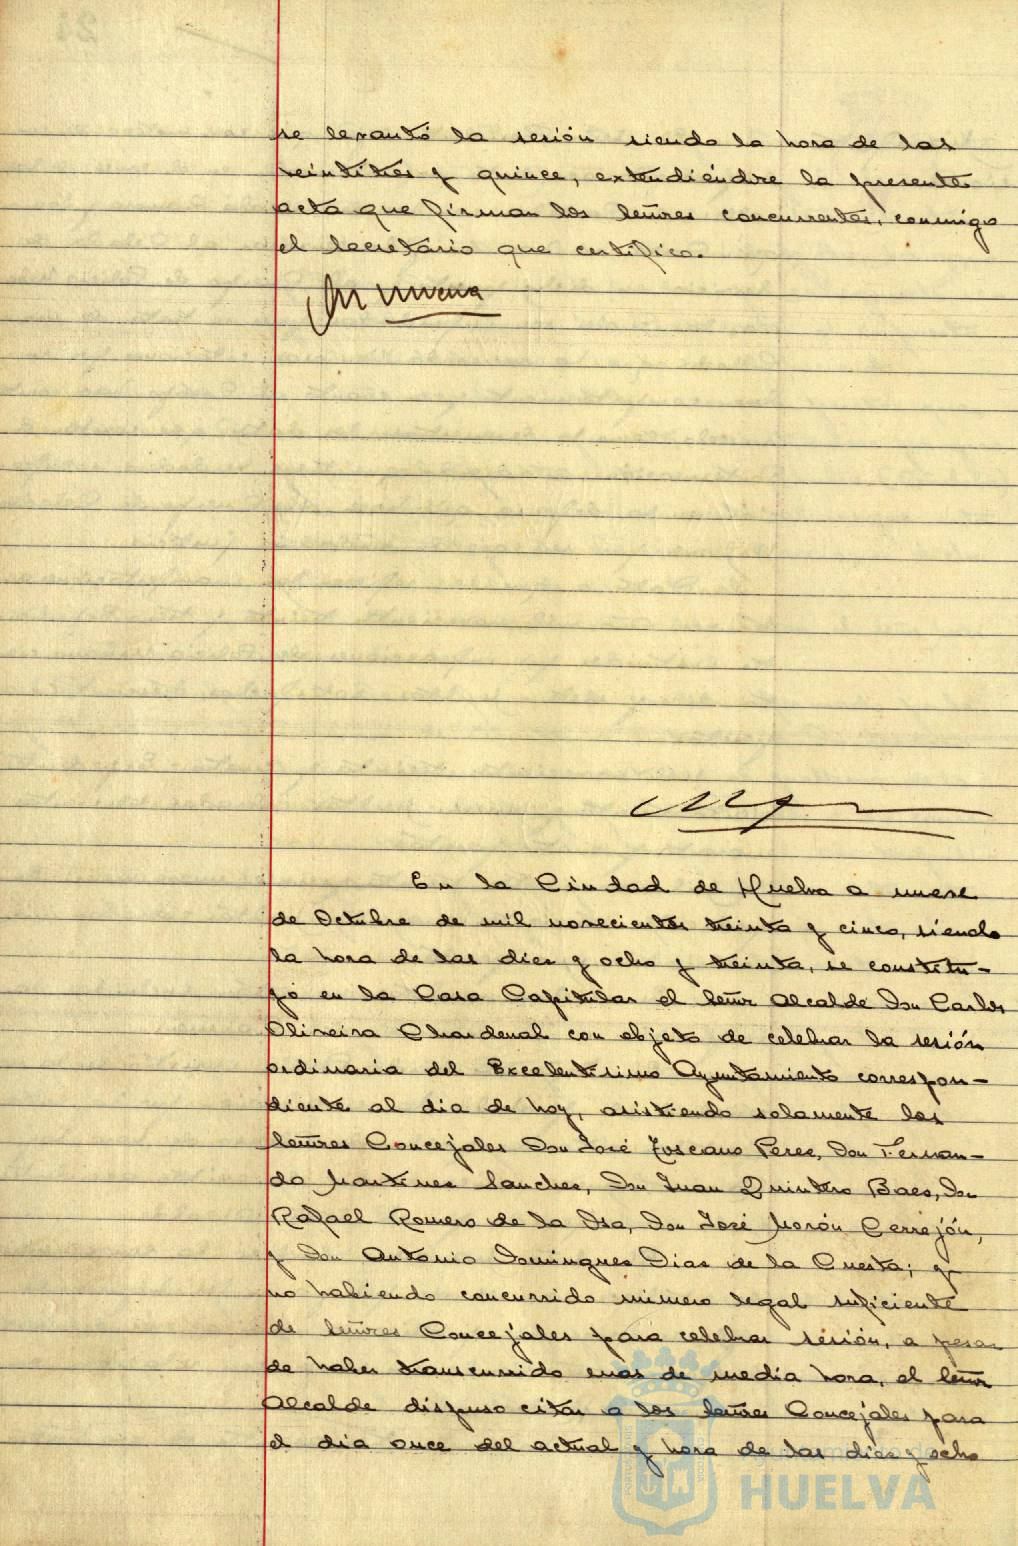 se levantó la sesión siendo la hora de las
veintitres y quince, extendiéndose la presente
acta que firman los Señores concurrentes, conmigo
el Secretario que certifico.
En la Ciudad de Huelva a nueve
de Octubre de mil novecientos treinta y cinco, siendo
la hora de las diez y ocho y treinta, se constitu-
yó en la Casa Capitular el Señor Alcalde Don Carlos
Oliveira Chardenal con objeto de celebrar la sesión
ordinaria del Excelentísimo Ayuntamiento correspon-
diente al dia de hoy, asistiendo solamente los
Señores Concejales Don José Toscano Perez, Don Fernan-
do Martinez Sanchez, Don Juan Quintero Baez, Don
Rafael Romero de la Osa, Don José Morón Cerrejón,
y Don Antonio Dominguez Diaz de la Cuesta; y
no habiendo concurrido número legal suficiente
de Señores Concejales para celebrar sesión, a pesar
de haber transcurrido mas de media hora, el Señor
Alcalde dispuso citar a los Señores Concejales para
el dia once del actual y hora de las diez y ocho
HUELVA